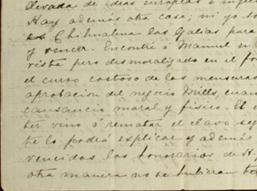 levada de ideas europeas é ingle
Hay además otra cosa; ni yo so
es Chihuahua las Galias para
y vencer. Encontré á Manuel en
vista pero desmoralizado en el fo
el curso costoso de las mensuras
aprobacion del negocio Mills, cuan
cansancio moral y físico. El
ter vino á rematar el clavo seg
te lo podrá explicar y además
vencidos los honorarios de H
otra manera no se hubieran